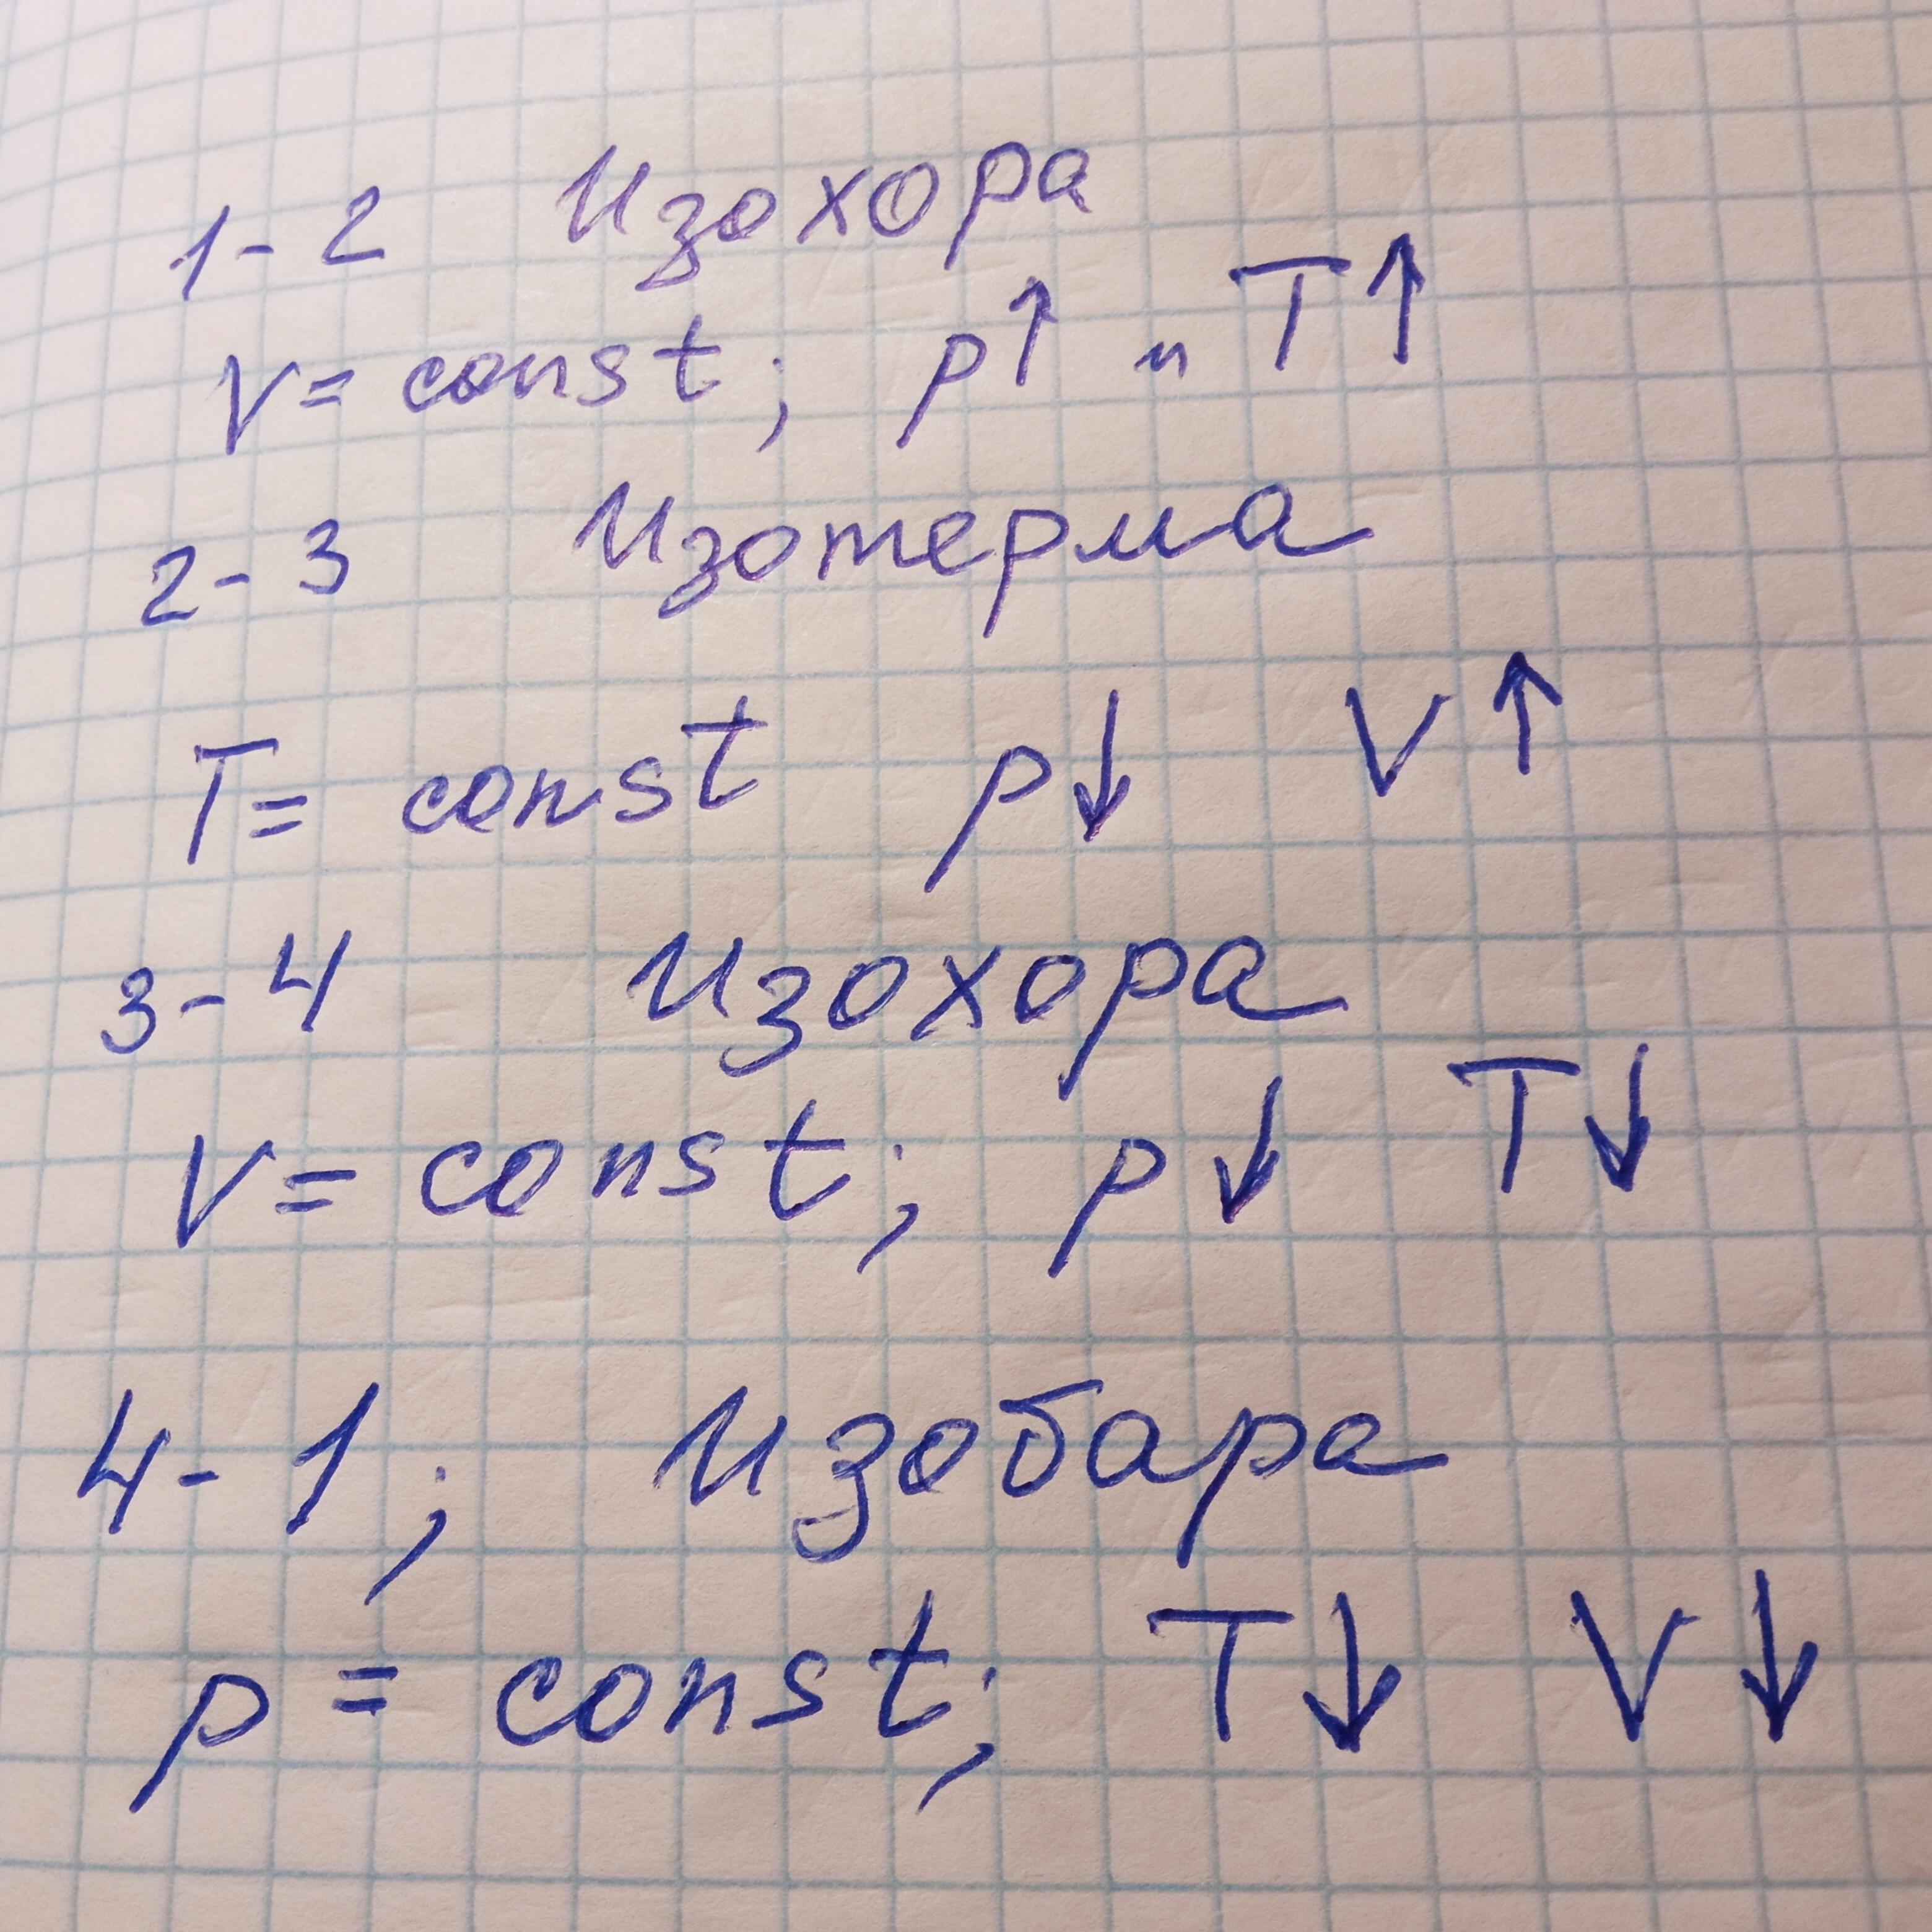 1-2 Изохора
V = const; p↑ и T↑
2-3 Изотерма
T = const p↓ V↑
3-4 Изохора
V = const; p↓ T↓
4-1; Изобара
p = const; T↓ V↓